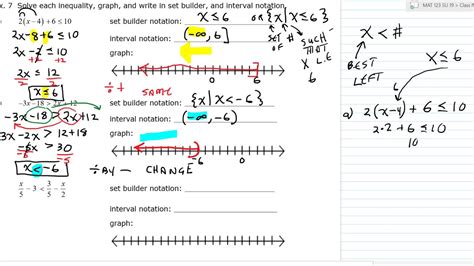 x. 7 Solve each inequality, graph, and write in set builder, and interval notation.
2(x − 4) + 6 ≤ 10
2x-8+6 ≤ 10
2x-2 ≤ 10
+2 +2
2x ≤ 12
/2 /2
x ≤ 6
set builder notation: x ≤ 6 or {x | x ≤ 6}
interval notation: (-∞, 6]
graph:
6
SET OF #
SUCH THAT
X L.E 6
÷ + SAME
−3x − 18 > 2x + 12
-3x-18 > 2x+12
-3x-2x > 12+18
-5x > 30
-5 -5
x < -6
set builder notation: {x | x < -6}
interval notation: (-∞, -6)
graph:
-6
÷ BY — CHANGE
x/5 − 3 < 3/5 − x/2
set builder notation:
interval notation:
graph:
MAT 123 SU 19 > Class
x < #
BEST LEFT
x ≤ 6
6
a) 2(x-4) + 6 ≤ 10
2·2 + 6 ≤ 10
10